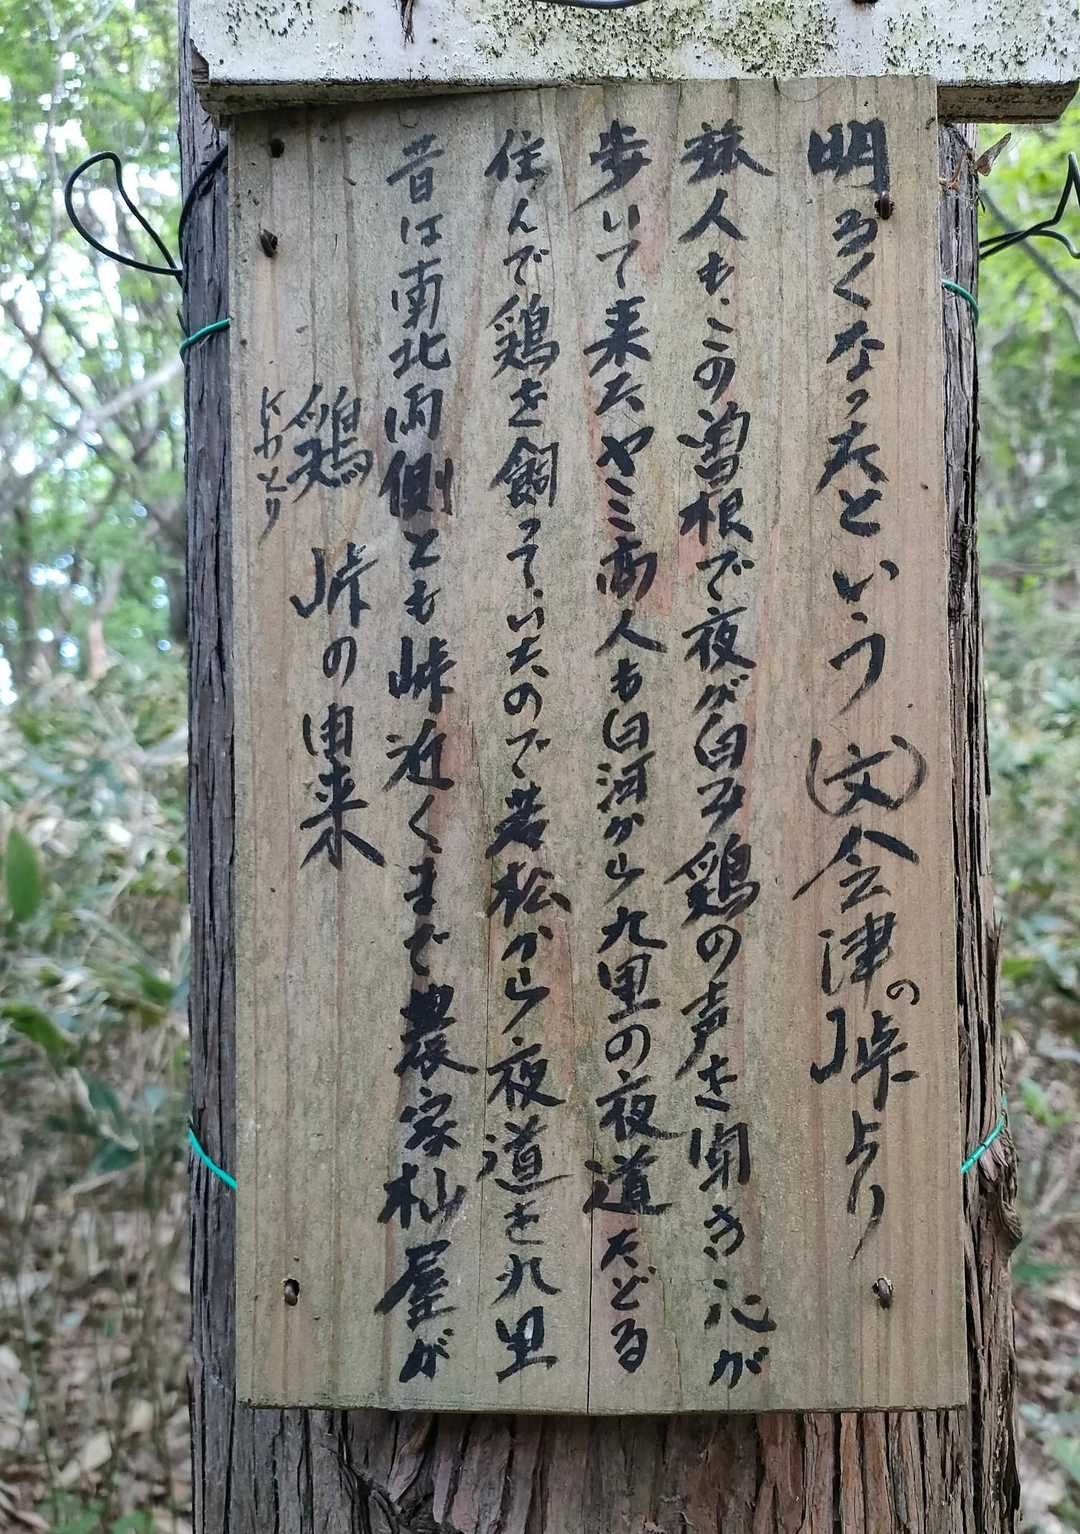 にわとり
鶏峠の由来
昔は南北両側とも峠近くまで農家杣屋が
住んで鶏を飼って、いたので若松から夜道を九里
歩いて来たヤミ商人も白河から九里の夜道たどる
旅人も、この曽根で夜が白み鶏の声を聞き、心が
明るくなったという(文)会津の峠より